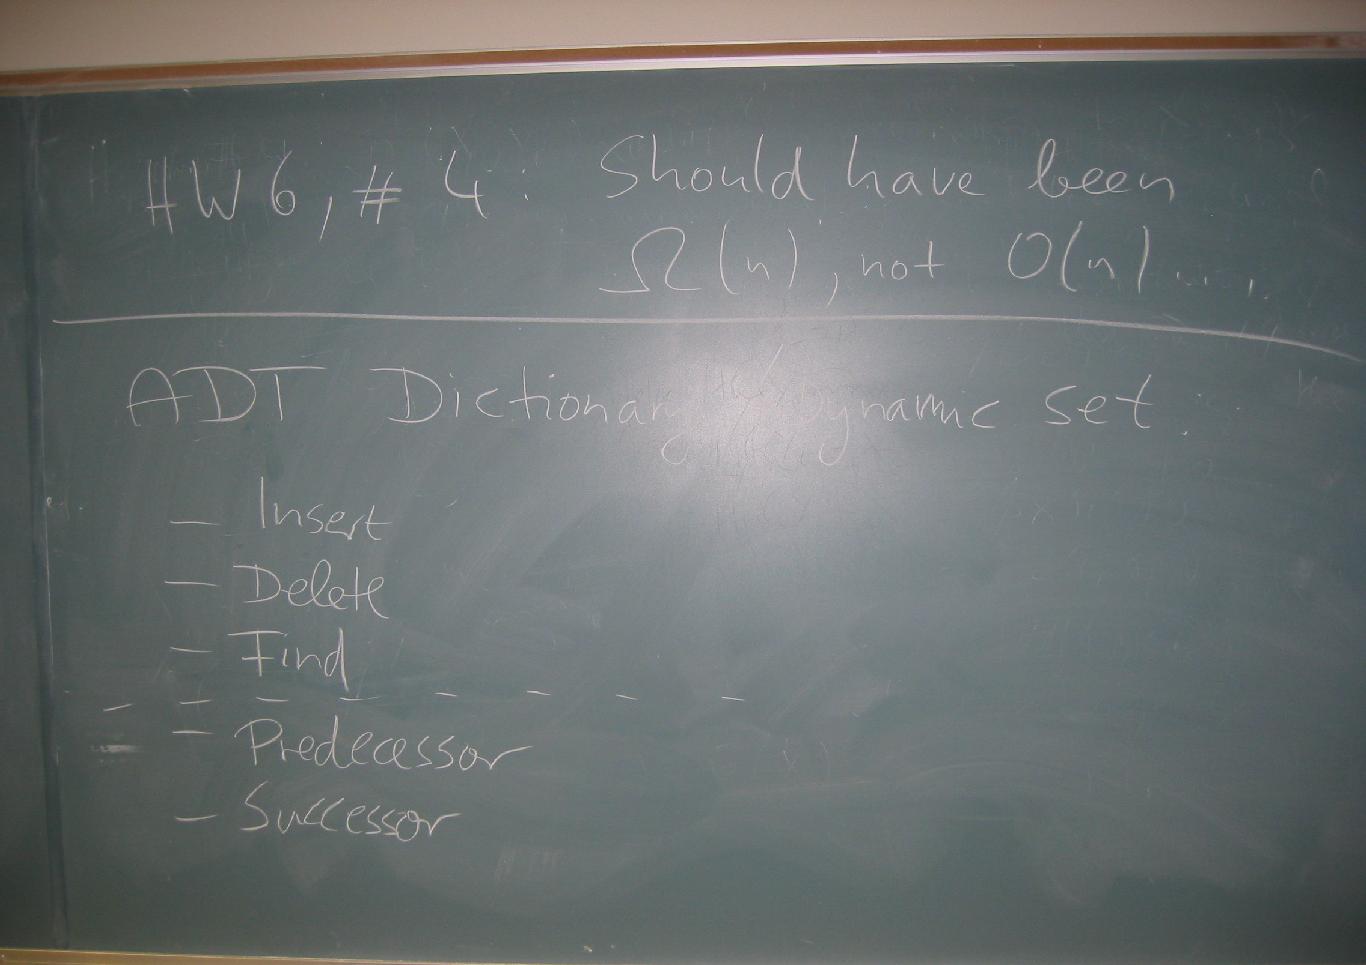 HW 6, # 4: Should have been
Ω(n), not O(n)....
ADT Dictionary / Dynamic set:
— Insert
— Delete
— Find
— Predecessor
— Successor